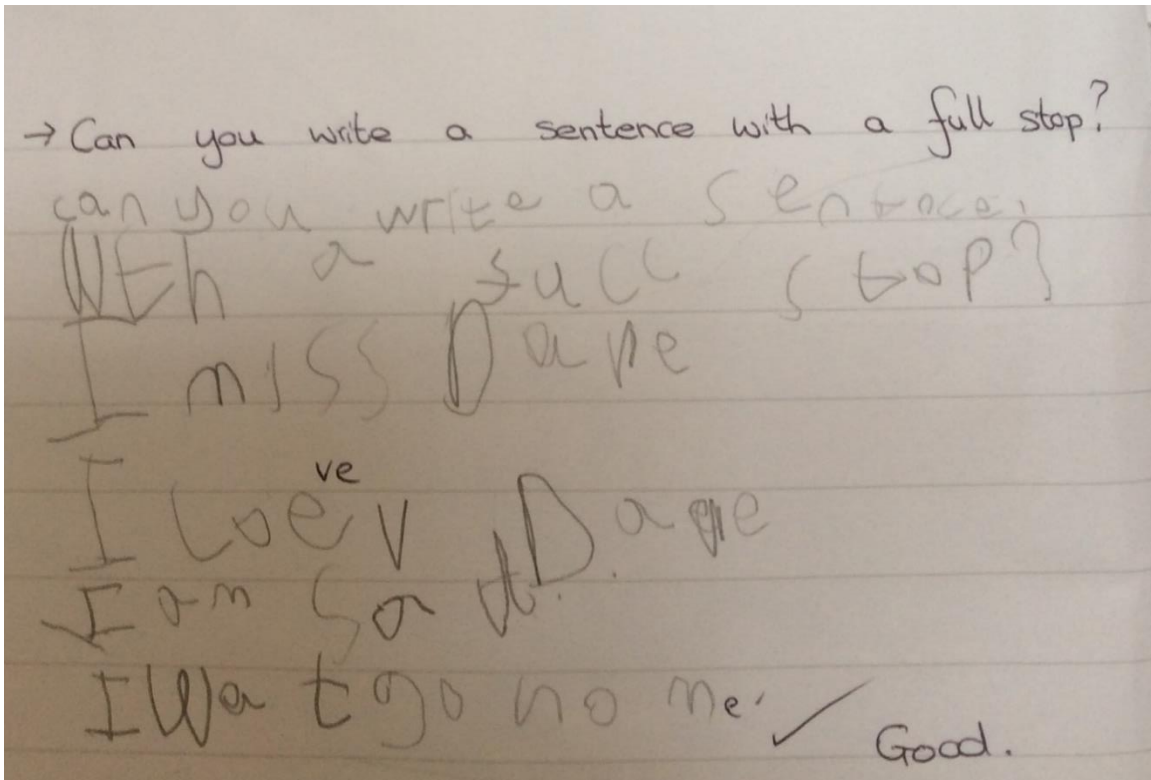 → Can you write a sentence with a full stop?
can you write a sentace.
Wth a full stop?
I miss Dane
ve
I Loev Dane
I am sad.
I Wa t go home.
✓ Good.